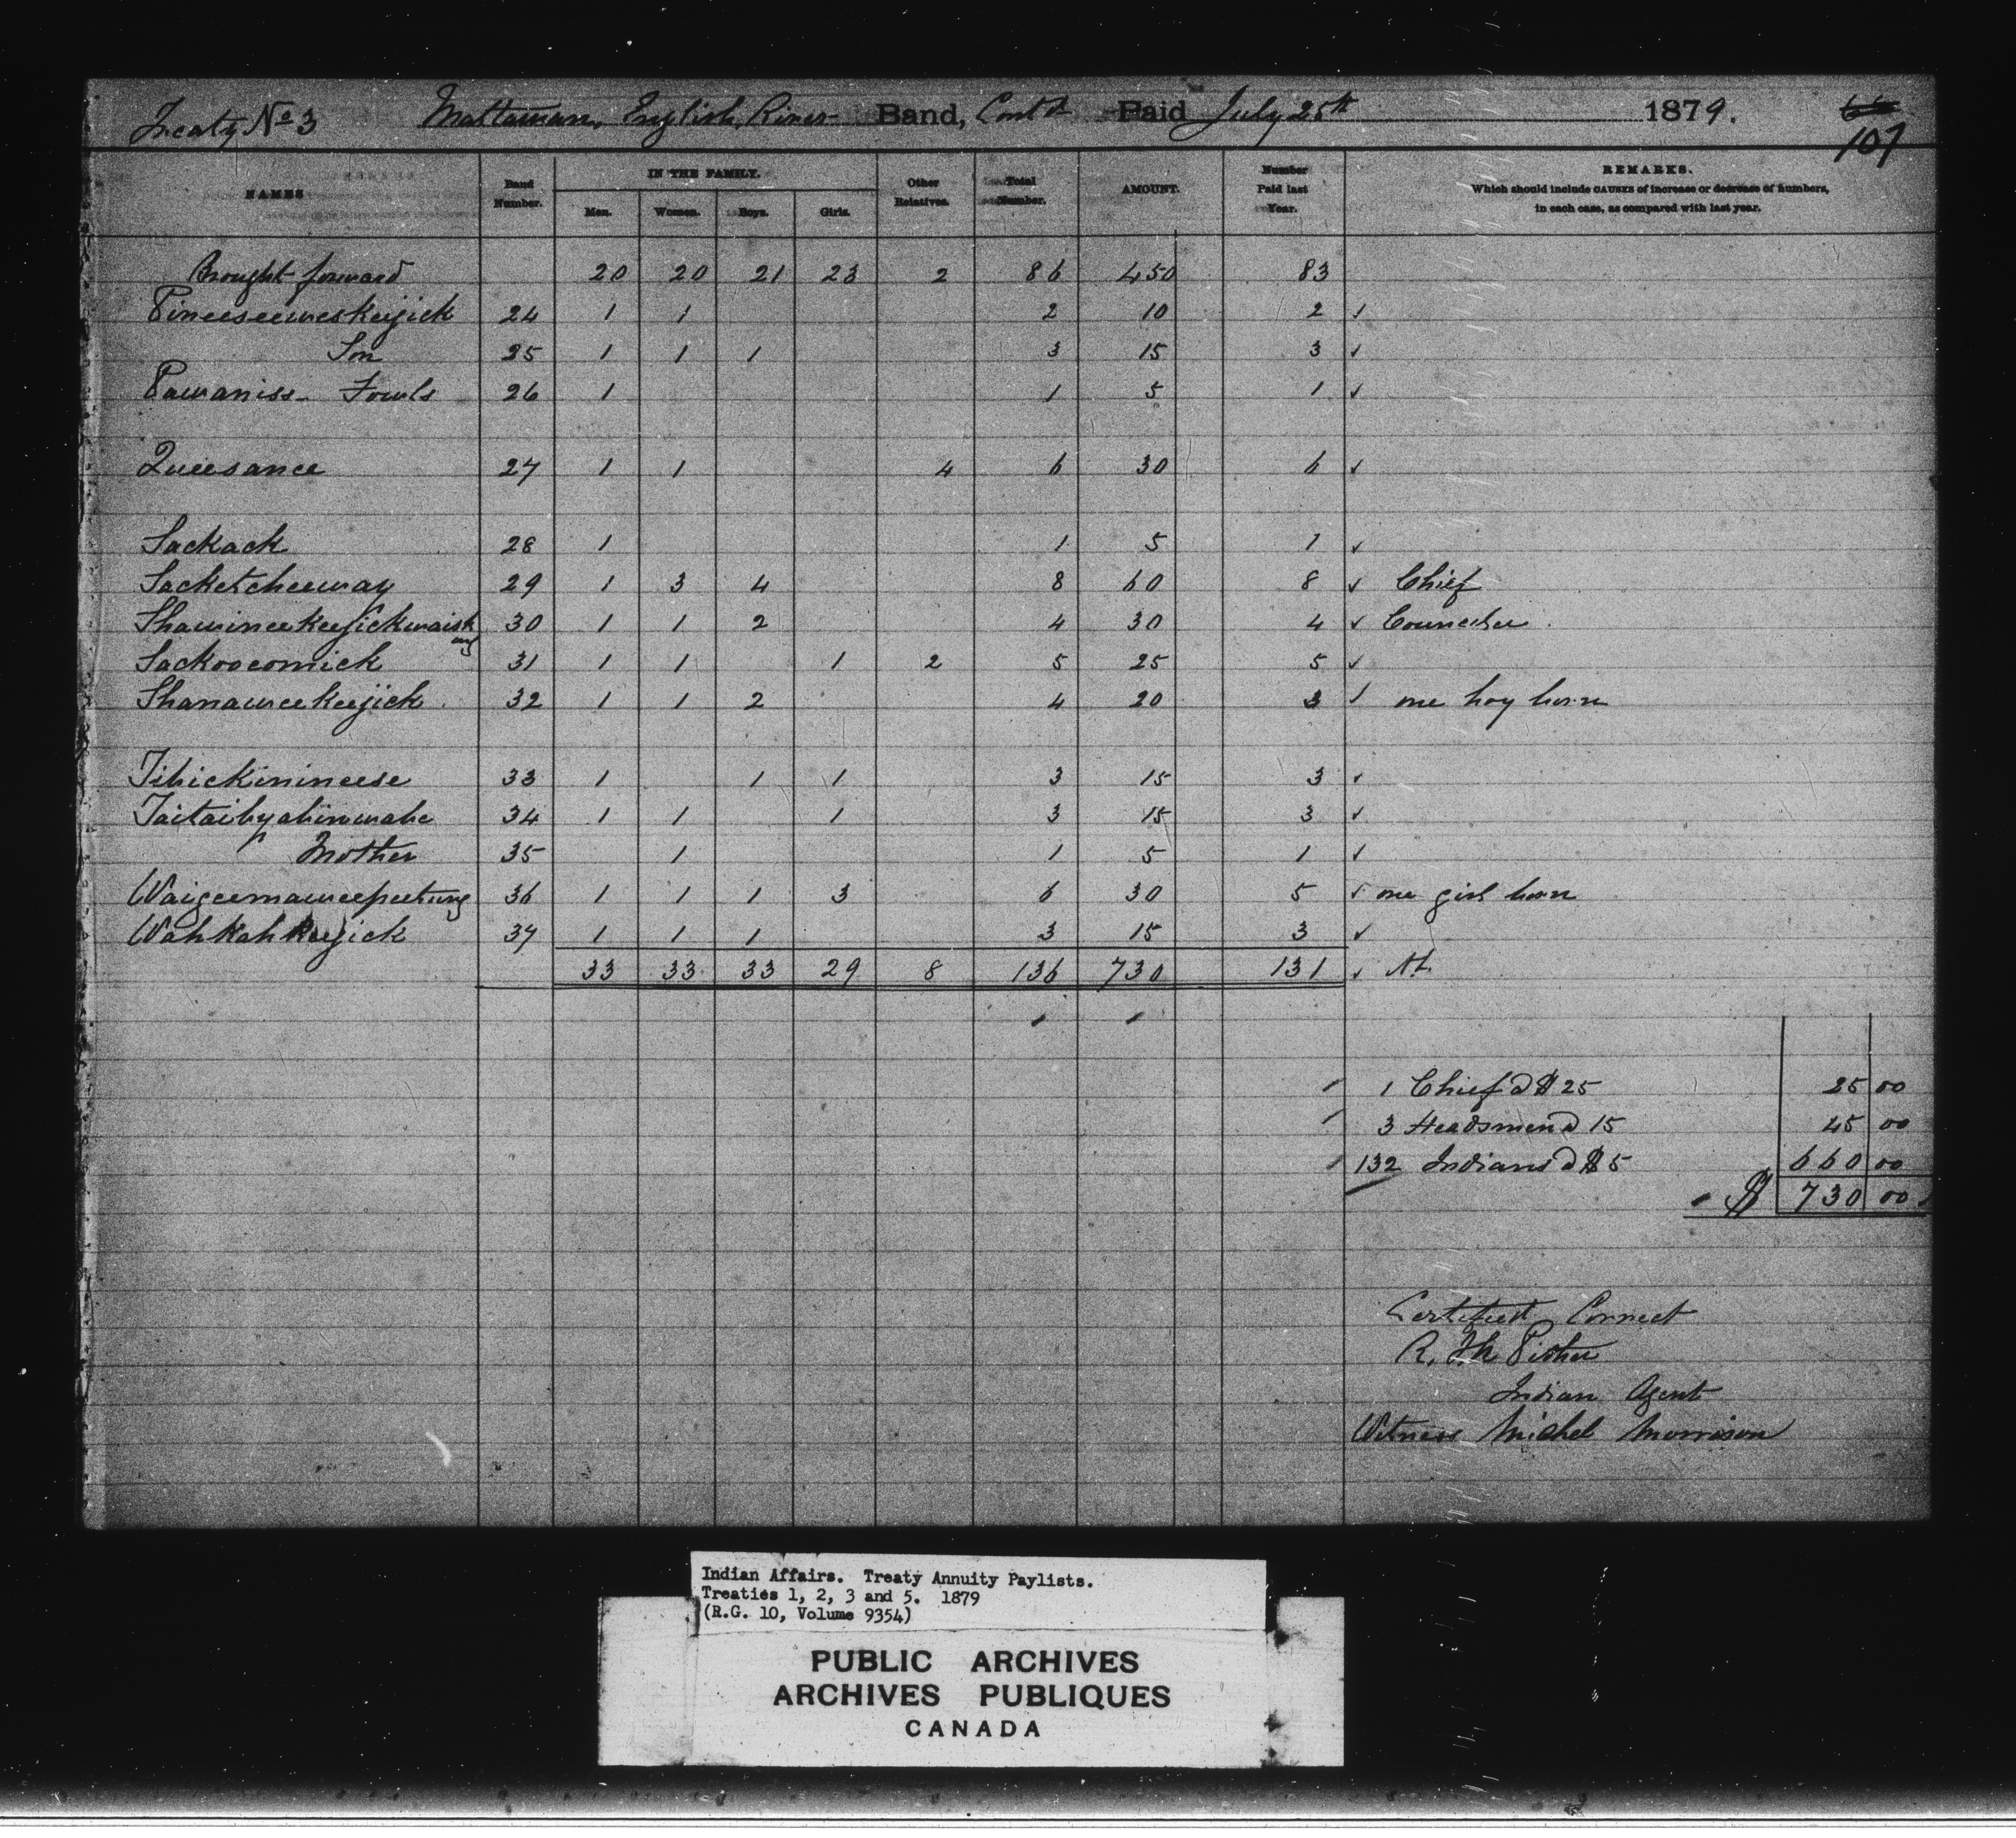 Treaty No 3 Mattawan, English River Band, Contd Paid July 25th 1879. 107
NAMES Band Number. IN THE FAMILY. Men. Women. Boys. Girls. Other Relatives. Total Number. AMOUNT. Number Paid last Year. REMARKS.
Which should include CAUSES of increase or decrease of numbers,
in each case, as compared with last year.
Brought forward 20 20 21 23 2 86 450 83
Pineeseeweskeijick 24 1 1 2 10 2 ✓
Son 25 1 1 1 3 15 3 ✓
Pawaniss - Fowls 26 1 1 5 1 ✓
Queesance 27 1 1 4 6 30 6 ✓
Sackack 28 1 1 5 1 ✓
Sacketcheeway 29 1 3 4 8 60 8 ✓ Chief
Shawineekeejickwaishung 30 1 1 2 4 30 4 ✓ Councilor
Sackoocomick 31 1 1 1 2 5 25 5 ✓
Shanaweekeejick 32 1 1 2 4 20 3 ✓ one boy born
Tibickinineese 33 1 1 1 3 15 3 ✓
Taitaibyahinwabe 34 1 1 1 3 15 3 ✓
" Mother 35 1 1 5 1 ✓
Waigeemaweepeetung 36 1 1 1 3 6 30 5 ✓ one girl born
Wahkahkeejick 37 1 1 1 3 15 3 ✓
33 33 33 29 8 136 730 131 ✓
1 Chief @ $25 25 00
3 Headsmen @ 15 45 00
132 Indians @ $5 660 00
$ 730 00
Certified Correct
R. J. N. Pither
Indian Agent
Witness Michel Morrison
Indian Affairs. Treaty Annuity Paylists.
Treaties 1, 2, 3 and 5. 1879
(R.G. 10, Volume 9354)
PUBLIC ARCHIVES
ARCHIVES PUBLIQUES
CANADA